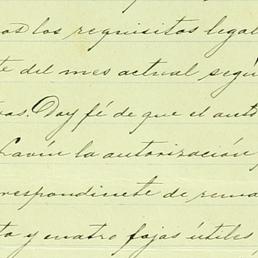 os los requisitos legal
te del mes actual segú
vas. Doy fé de que el auto
Lavín la autorización
rrespondinete de rema
ta y cuatro fojas útiles